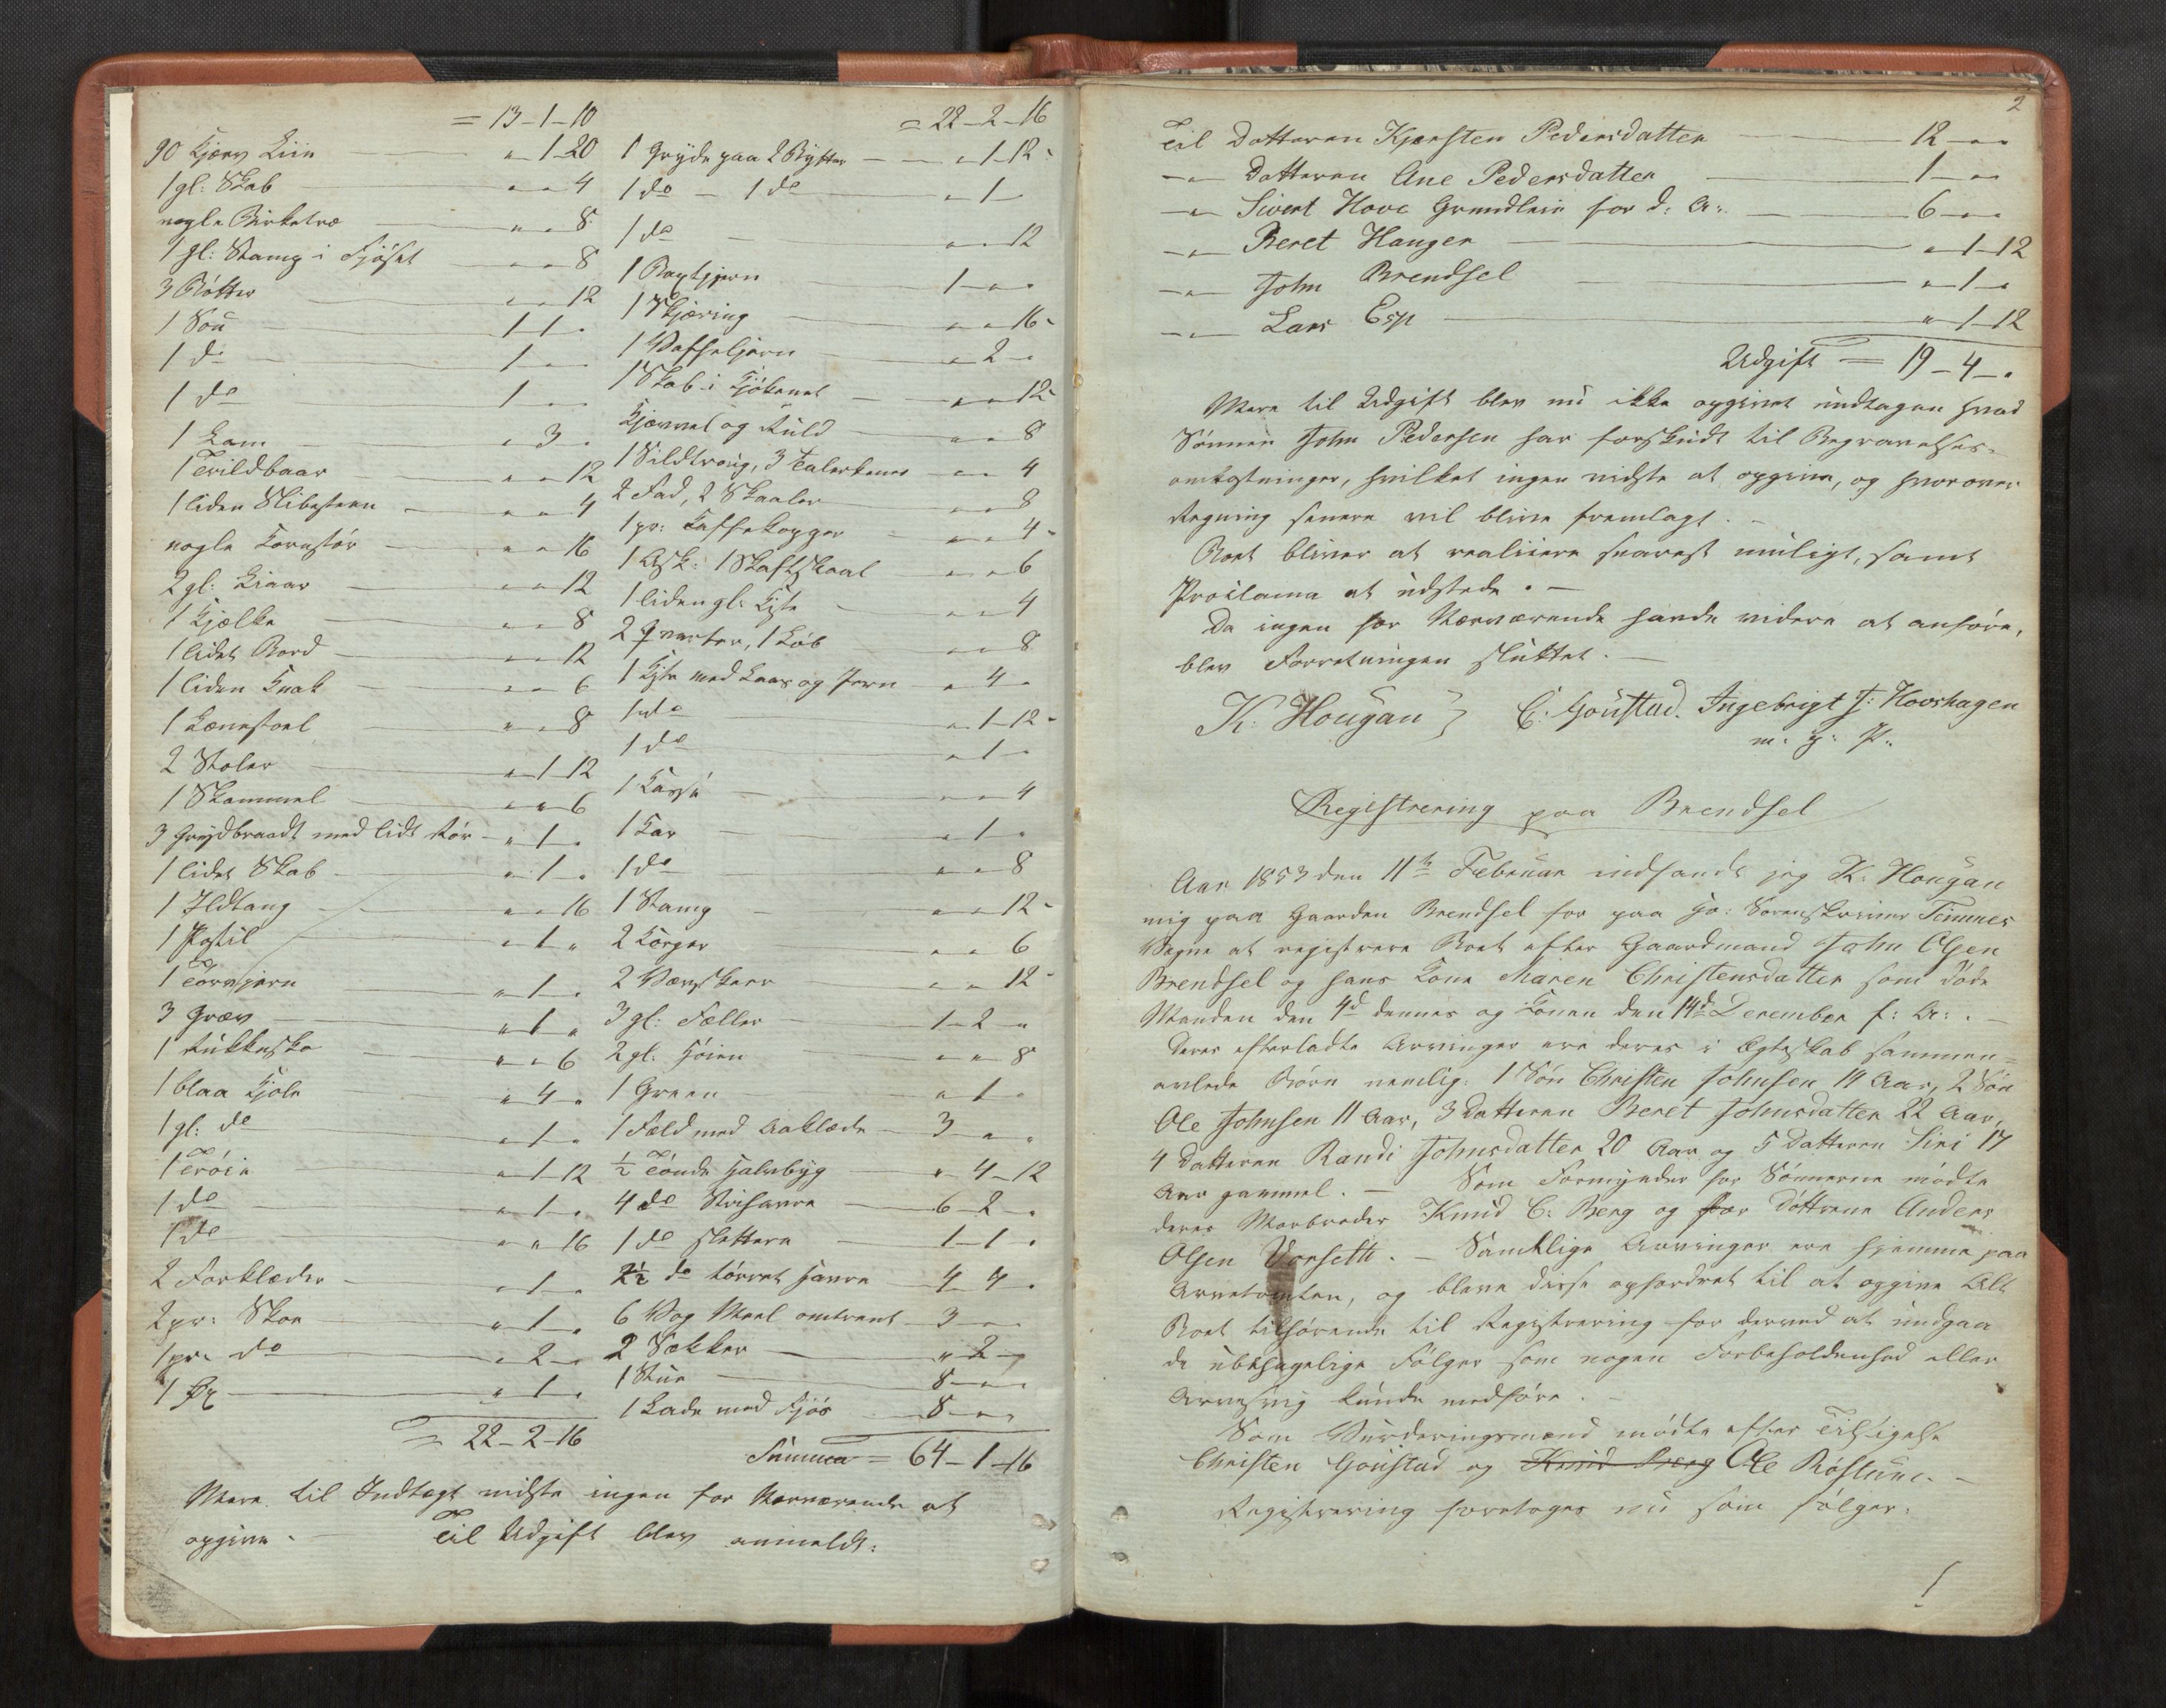 = 13-1-10
90 Kjærv Liin " 1-20
1 gl: Skab " " 4
nogle Birketræ " " 8
1 gl: Stamp i Fjöset " " 8
3 Bötter " " 12
1 Sou 1-1 "
1 do 1 " "
1 do 1 " "
1 Lam " 3 "
1 Trildbaar " " 12
1 liden Slibesteen " " 4
nogle Kornstör " " 16
2 gl: Liaar " " 12
1 Kjælke " " 8
1 lidet Bord " " 12
1 liden Knak " " 6
1 Lænestoel " " 8
2 Stoler " 1-12
1 Skammel " " 6
3 Grydbraadt med lidt Rör " 1 "
1 lidet Skab " 1 "
1 Ildtang " " 16
1 Postil " 1 "
1 Torvjern " 1 "
3 Græv " 1 "
1 " " 6
1 blaa Kjole " 4 "
1 gl: do " 1 "
1 Tröie " 1-12
1 do " 1 "
1 do " " 16
2 Forklæder " 1 "
2 pr: Skoe " 1 "
1 pr. do " 2 "
1 Öx " 1 "
= 22-2-16
= 22-2-16
1 Gryde paa 2 Bytter " 1-12
1 do - 1 do " 1 "
1 do " " 12
1 Baxtjern 1 " "
1 Skjæring " " 16
1 Vaffeljern " 2 "
1 Skab i Kjökenet " " 12
Kjörrel og Kuld " " 8
1 Sildtroug, 3 Talerkener " " 4
2 Fad, 2 Skaaler " " 8
1 pr: Kaffekopper " " 4
1 Ask: 1 Skaftskaal " " 6
1 liden gl: Kiste " " 4
2 Qvarter, 1 Löb " " 8
1 Kiste med Laas og Jern " 4 "
1 do " 1-12
1 do " 1 "
1 " " 4
1 Kar " 1 "
1 do " " 8
1 Stamp " " 12
2 Körger " " 6
2 " " 12
3 gl: Fæller 1-2 "
2 gl: Höien " " 8
1 Green " 1 "
1 Fæld med Aaklæde 3 " "
½ Tönde Halvbyg " 4-12
4 do Havre 6-2 "
1 do slettere 1-1 "
2½ do törret Havre 4-4 "
6 Vog Meel omtrent 3 " "
2 Sækker " 2 "
1 Stue 8 " "
1 Lade med Fjös 8 " "
Summa = 64-1-16
Mere til Indtægt vidste ingen for Nærværende at
opgive. - Til Udgift blev anmeldt:
2
Til Datteren Kjersten Pedersdatter 12 " "
-"- Datteren Ane Pedersdatter 1 " "
-"- Sivert Hove Grundleie for d: A: 6 " "
-"- Beret Haugen " 1-12
-"- John Brendsel " 1 "
-"- Lars Esp " 1-12
Udgift = 19-4 "
Mere til Udgift blev nu ikke opgivet undtagen hvad
Sönnen John Pedersen har forskudt til Begravelses-
omkostninger, hvilket ingen vidste at opgive, og hvorover
Regning senere vil blive fremlagt. -
Boet bliver at realiiere snarest muligt, samt
Proclama at udstede. -
Da ingen for Nærværende havde videre at anföre,
blev Forretningen sluttet. -
K. Hougan } C: Goustad. Ingebrigt J: Hovshagen
m: p: P:
Registrering paa Brendsel
Aar 1853 den 11te Februar indfandt jeg K: Hougan
mig paa Gaarden Brendsel for paa Hr: Sorenskriver Timmes
Vegne at registrere Boet efter Gaardmand John Olsen
Brendsel og hans Kone Maren Christensdatter som döde
Manden den 4d dennes og Konen den 14de December f: A: . -
Deres efterladte Arvinger ere deres i Ægteskab sammen=
avlede Börn nemlig: 1 Sön Christen Johnsen 14 Aar, 2 Sön
Ole Johnsen 11 Aar, 3 Datteren Beret Johnsdatter 22 Aar,
4 Datteren Randi Johnsdatter 20 Aar og 5 Datteren Siri 17
Aar gammel. - Som Formynder for Sönnerne mödte
deres Morbroder Knud C: Berg og for Döttrene Anders
Olsen Vorseth. - Samtlige Arvinger ere hjemme paa
Arvetomten, og bleve disse opfordret til at opgive Alt
Boet tilhörende til Registrering for derved at undgaa
de ubehagelige Fölger som nogen Forbeholdenhed eller
Arvesvig kunde medföre. -
Som Vurderingsmænd mödte efter Tilsigelse
Christen Goustad og Knud Berg Ole Röstuen. -
Registrering foretoges nu som fölger:
1